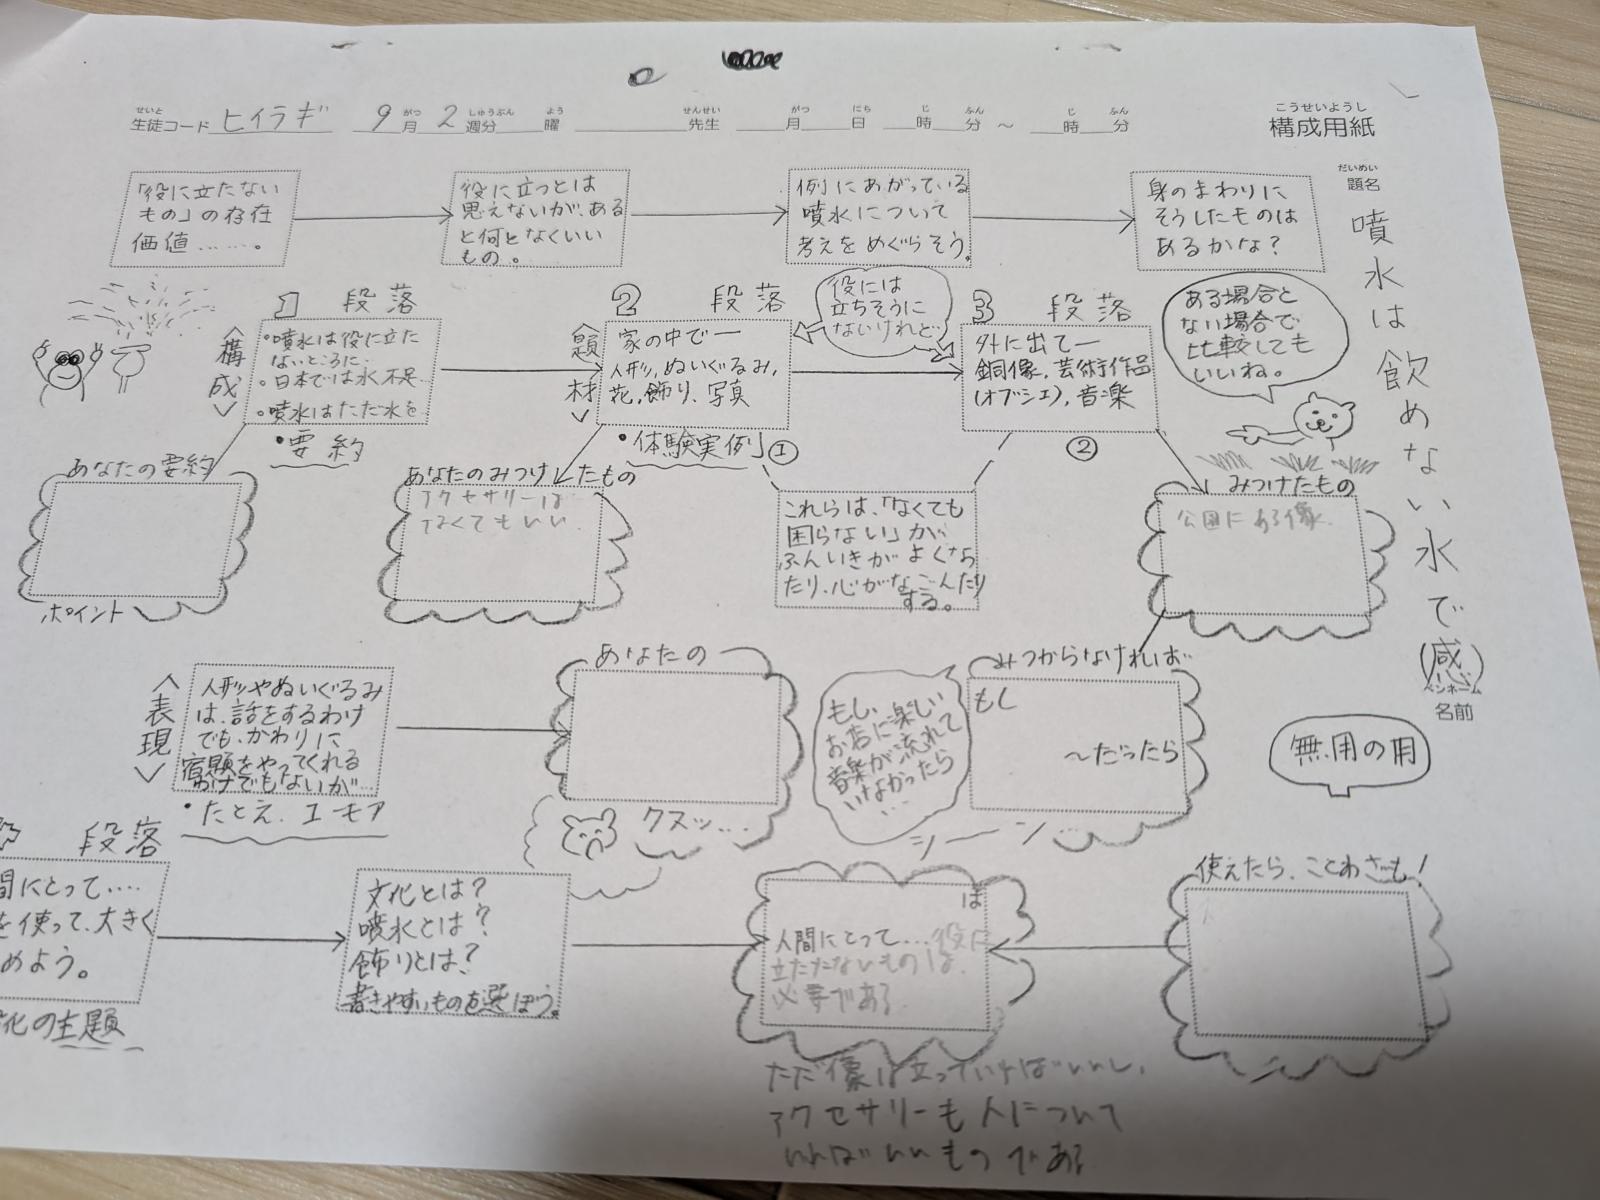 構成用紙
こうせいようし
生徒コード ヒイラギ 9月 2週分 曜 先生 月 日 時 分 ～ 時 分
せいと がつ しゅうぶん よう せんせい がつ にち じ ふん じ ふん
だいめい
題名
噴水は飲めない水で(感)
ペンネーム
名前
「役に立たない
もの」の存在
価値……。
役に立つとは
思えないが、ある
と何となくいい
もの。
例にあがっている
噴水について
考えをめぐらそう。
身のまわりに
そうしたものは
あるかな?
〈構成〉
1 段落
・噴水は役に立た
ないところに…
・日本では水不足…
・噴水はただ水を…
・要約
あなたの要約
ポイント
〈題材〉
2 段落
家の中で―
人形、ぬいぐるみ、
花、飾り、写真
・体験実例①
役には
立ちそうに
ないけれど…
3 段落
外に出て―
銅像、芸術作品
(オブジェ)、音楽
②
ある場合と
ない場合で
比較しても
いいね。
あなたのみつけたもの
アクセサリーは
なくてもいい
これらは、「なくても
困らない」が
ふんいきがよくなっ
たり、心がなごんだり
する。
みつけたもの
公園にある像
〈表現〉
人形やぬいぐるみ
は、話をするわけ
でも、かわりに
宿題をやってくれる
わけでもないが…
・たとえ、ユーモア
あなたの
クスッ…
もし、
お店に楽しい
音楽が流れて
いなかったら
…
みつからなければ…
もし
～だったら
シーン…
無用の用
段落
間にとって….
を使って、大きく
めよう。
化の主題
文化とは?
噴水とは?
飾りとは?
書きやすいものを選ぼう。
は
人間にとって…役に
立たたないものは、
必要である
使えたら、ことわざも!
ただ像は立っていればいいし、
アクセサリーも人について
いればいいものである